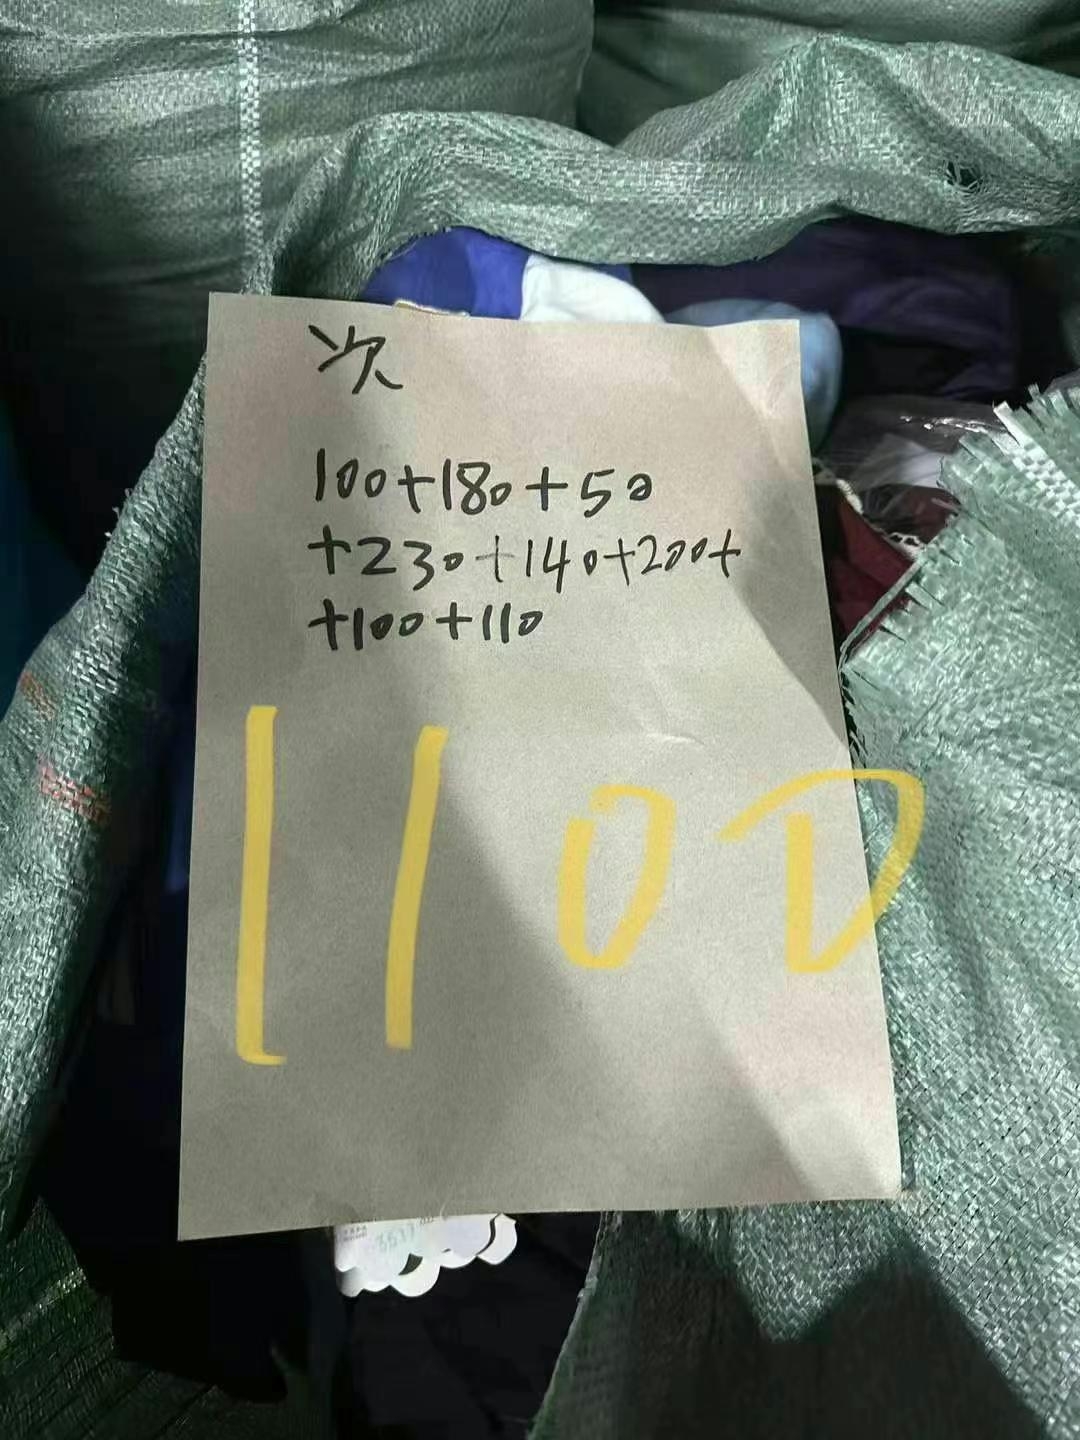 次
100+180+50
+230+140+200+
+100+110
1100
3537